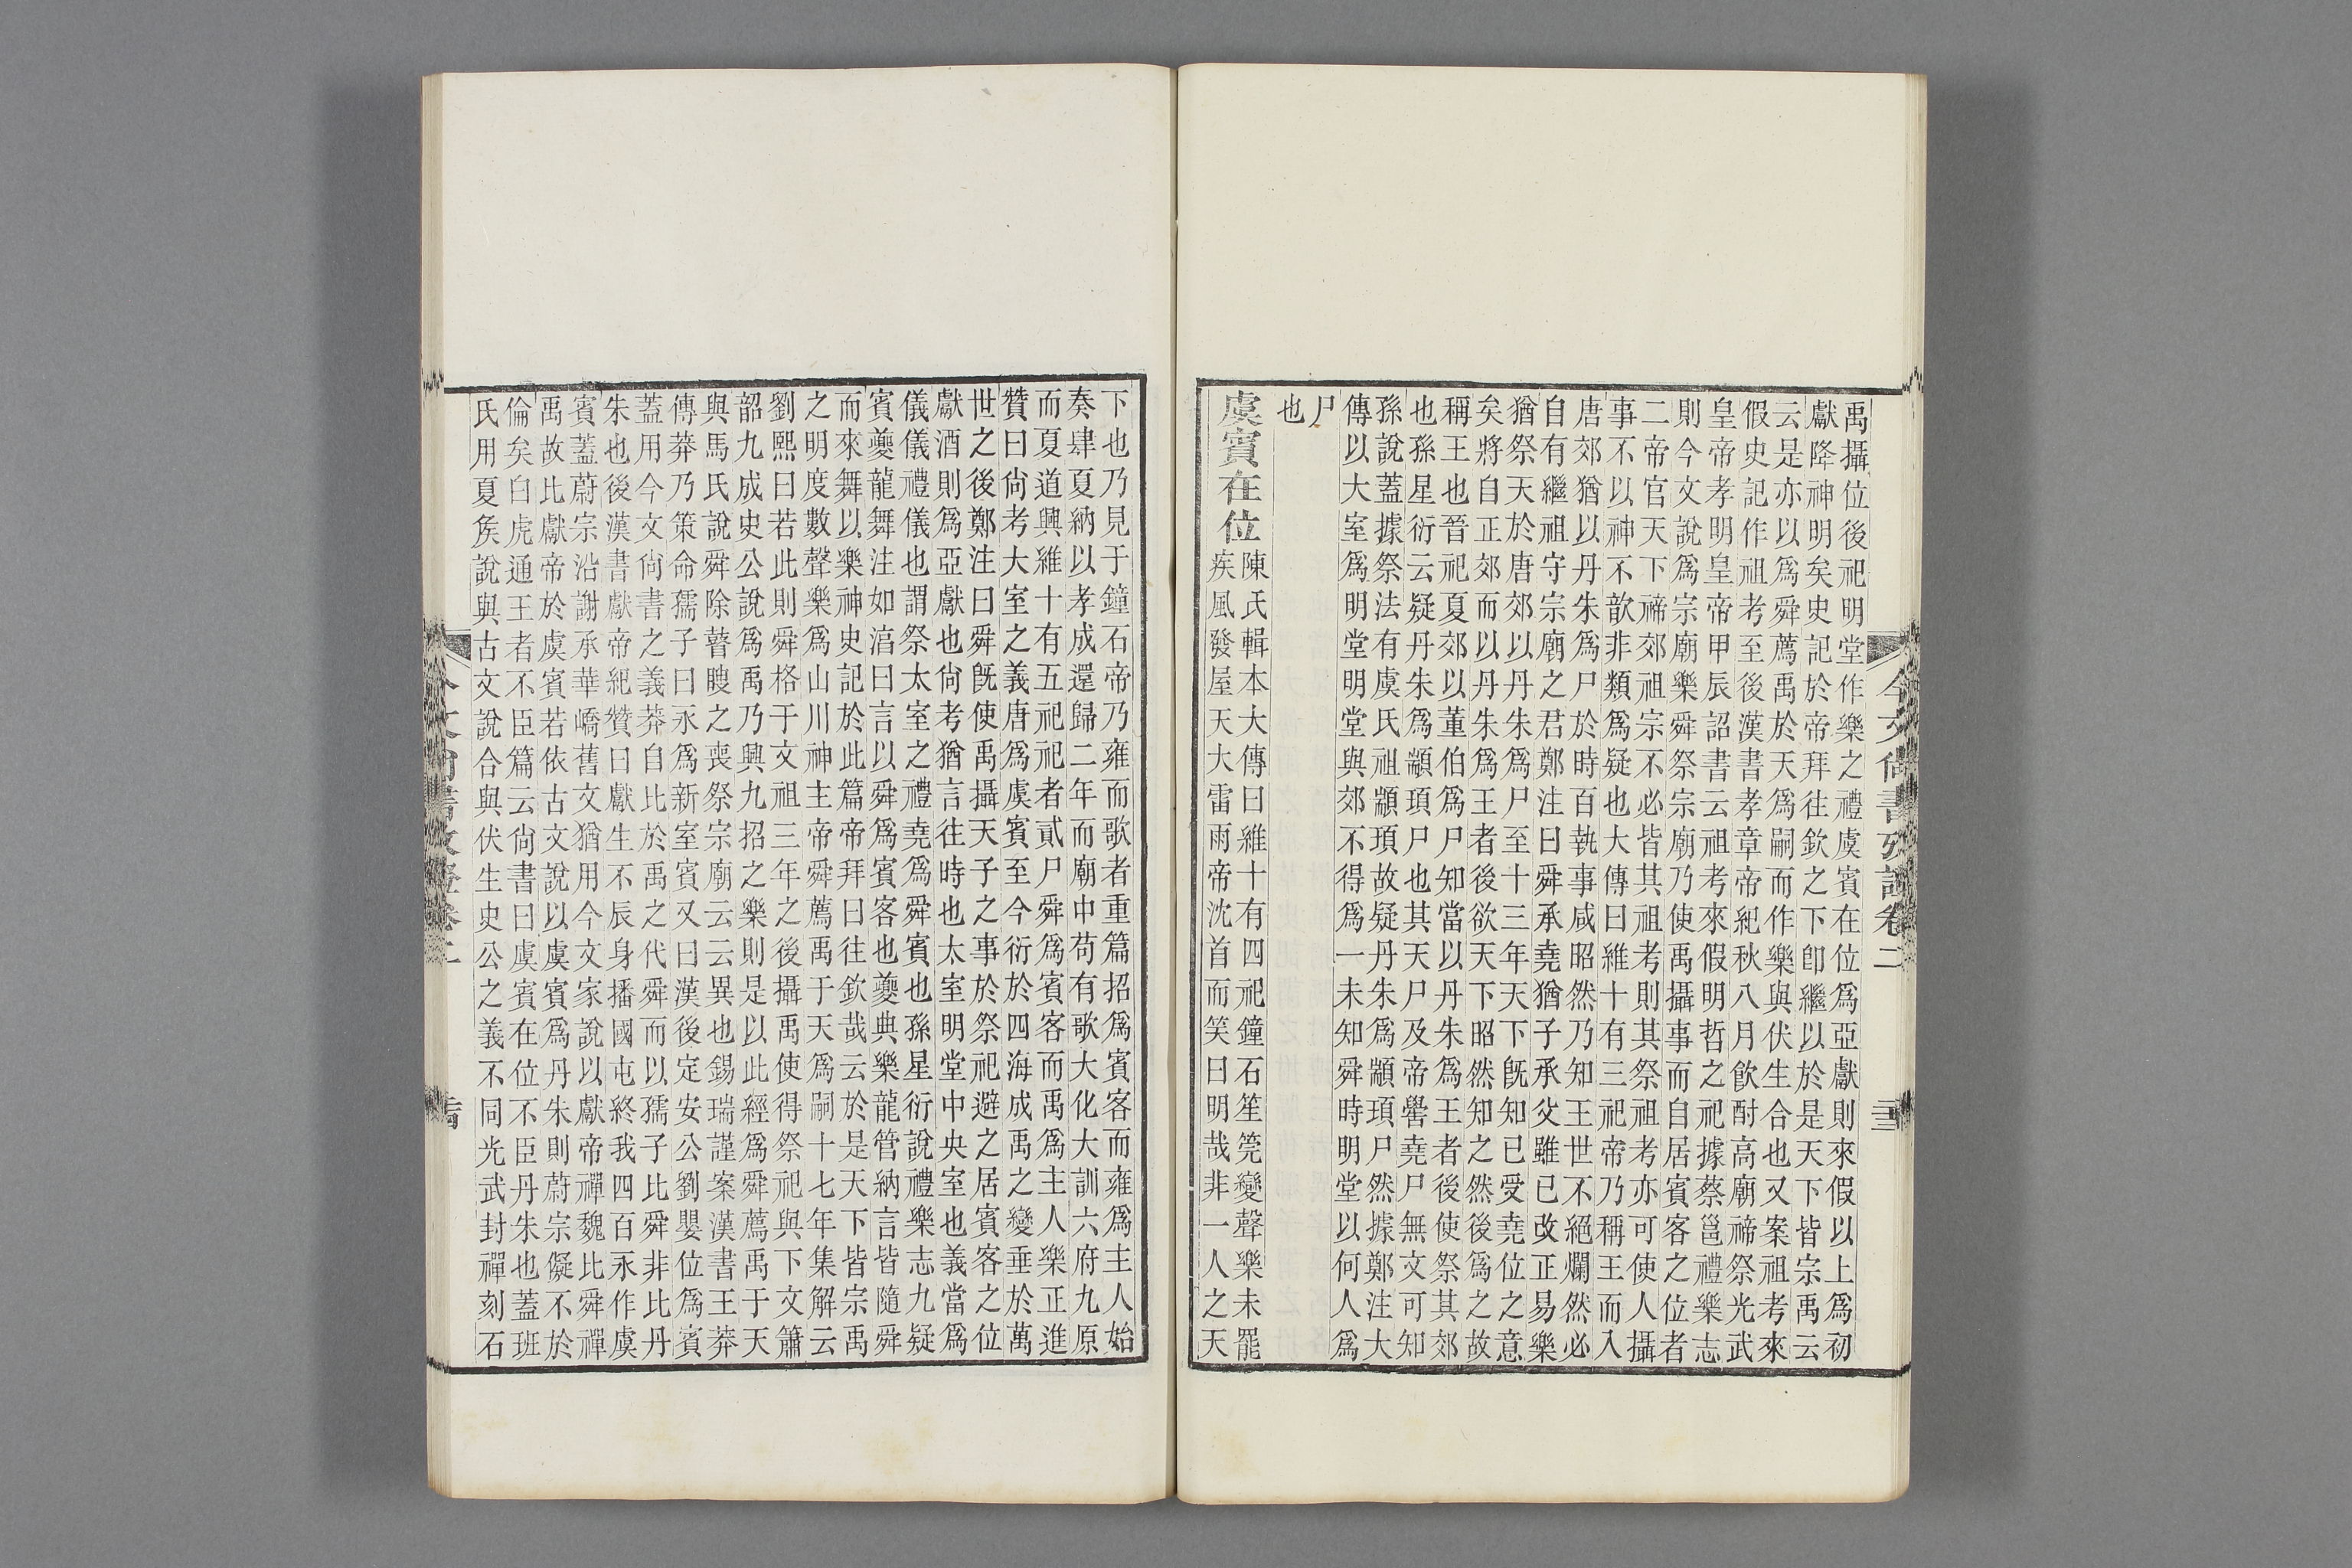 禹攝位後祀明堂作樂之禮虞賓在位爲亞獻則來假以上爲初
獻降神明矣史記於帝拜往欽之下卽繼以於是天下皆宗禹云
云是亦以爲舜薦禹於天爲嗣而作樂與伏生合也又案祖考來
假史記作祖考至後漢書孝章帝紀秋八月飮酎高廟禘祭光武
皇帝孝明皇帝甲辰詔書云祖考來假明哲之祀據蔡邕禮樂志
則今文說爲宗廟樂舜祭宗廟乃使禹攝事而自居賓客之位者
二帝官天下禘郊祖宗不必皆其祖考則其祭祖考亦可使人攝
事不以神不歆非類爲疑也大傳曰維十有三祀帝乃稱王而入
唐郊猶以丹朱爲尸於時百執事咸昭然乃知王世不絕爛然必
自有繼祖守宗廟之君鄭注曰舜承堯猶子承父雖已改正易樂
猶祭天於唐郊以丹朱爲尸至十三年天下旣知已受堯位之意
矣將自正郊而以丹朱爲王者後欲天下昭然知之然後爲之故
稱王也晉祀夏郊以董伯爲尸知當以丹朱爲王者後使祭其郊
也孫星衍云疑丹朱爲顓頊尸也其天尸及帝嚳堯尸無文可知
孫說蓋據祭法有虞氏祖顓頊故疑丹朱爲顓頊尸然據鄭注大
傳以大室爲明堂明堂與郊不得爲一未知舜時明堂以何人爲
尸
也
虞賓在位
陳氏輯本大傳曰維十有四祀鐘石笙筦變聲樂未罷
疾風發屋天大雷雨帝沈首而笑曰明哉非一人之天
今文尙書攷證卷二
下也乃見于鐘石帝乃雍而歌者重篇招爲賓客而雍爲主人始
奏肆夏納以孝成還歸二年而廟中苟有歌大化大訓六府九原
而夏道興維十有五祀祀者貳尸舜爲賓客而禹爲主人樂正進
贊曰尙考大室之義唐爲虞賓至今衍於四海成禹之變垂於萬
世之後鄭注曰舜旣使禹攝天子之事於祭祀避之居賓客之位
獻酒則爲亞獻也尙考猶言往時也太室明堂中央室也義當爲
儀儀禮儀也謂祭太室之禮堯爲舜賓也孫星衍說禮樂志九疑
賓夔龍舞注如淳曰言以舜爲賓客也夔典樂龍管納言皆隨舜
而來舞以樂神史記於此篇帝拜曰往欽哉云於是天下皆宗禹
之明度數聲樂爲山川神主帝舜薦禹于天爲嗣十七年集解云
劉熙曰若此則舜格于文祖三年之後攝禹使得祭祀與下文簫
韶九成史公說爲禹乃興九招之樂則是以此經爲舜薦禹于天
與馬氏說舜除瞽瞍之喪祭宗廟云云異也錫瑞謹案漢書王莽
傳莽乃策命孺子曰永爲新室賓又曰漢後定安公劉嬰位爲賓
蓋用今文尙書之義莽自比於禹之代舜而以孺子比舜非比丹
朱也後漢書獻帝紀贊曰獻生不辰身播國屯終我四百永作虞
賓蓋蔚宗沿謝承華嶠舊文猶用今文家說以獻帝禪魏比舜禪
禹故比獻帝於虞賓若依古文說以虞賓爲丹朱則蔚宗儗不於
倫矣白虎通王者不臣篇云尙書曰虞賓在位不臣丹朱也蓋班
氏用夏矦說與古文說合與伏生史公之義不同光武封禪刻石